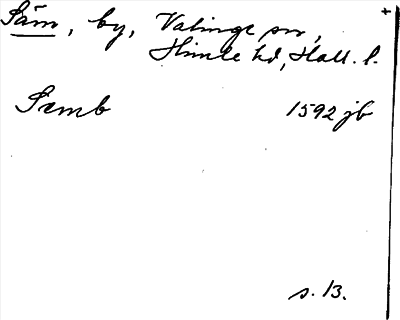 Säm, by, Valinge sn,
Himle hd, Hall. l.
Sæmb 1592 jb
s. 13.